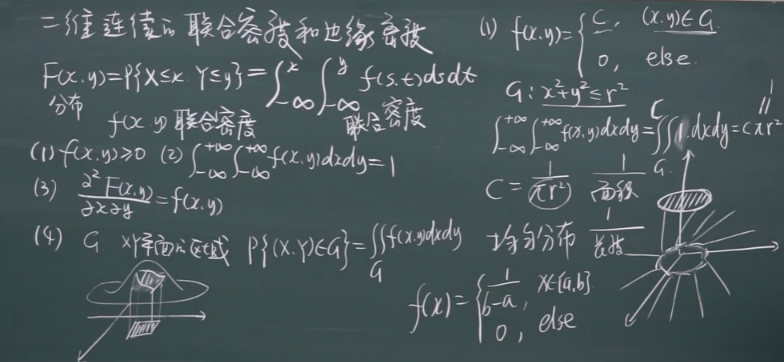 二维连续的联合密度和边缘密度
F(x,y)=P{X≤x, Y≤y}=∫_{-∞}^{x}∫_{-∞}^{y} f(s,t)dsdt
分布
f(x,y)联合密度
联合密度
(1) f(x,y)≥0 (2) ∫_{-∞}^{+∞}∫_{-∞}^{+∞} f(x,y)dxdy=1
(3) ∂²F(x,y)/∂x∂y=f(x,y)
(4) G XY平面的区域 P{(X,Y)∈G}=∬_G f(x,y)dxdy
(1) f(x,y)={C, (x,y)∈G
0, else.
G: x²+y²≤r²
1
∥
∫_{-∞}^{+∞}∫_{-∞}^{+∞} f(x,y)dxdy=C∬_G 1·dxdy=Cπr²
C=1/(πr²) 1/面积
均匀分布 1/长度
f(x)={1/(b-a), x∈[a,b]
0, else